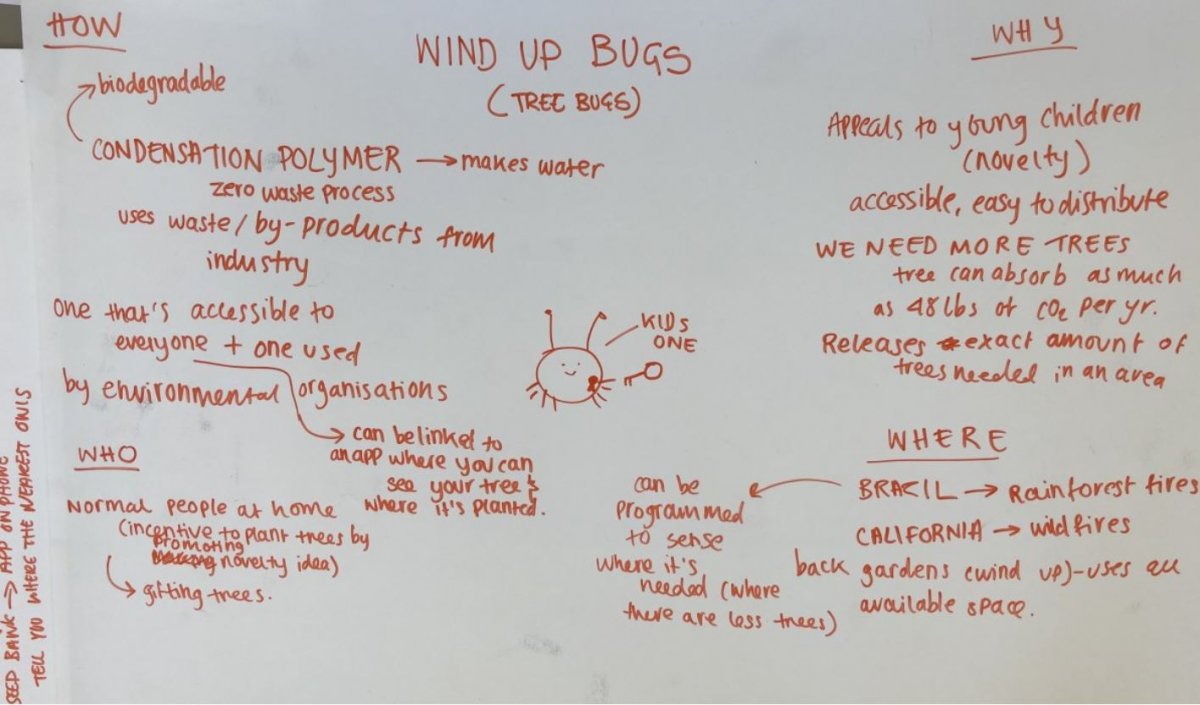 HOW
WIND UP BUGS
(TREE BUGS)
WHY
biodegradable
CONDENSATION POLYMER → makes water
zero waste process
uses waste/by-products from
industry
one that's accessible to
everyone + one used
by environmental organisations
can be linked to
an app where you can
see your tree &
where it's planted.
WHO
Normal people at home
(incentive to plant trees by
promoting
novelty idea)
gifting trees.
KIDS
ONE
Appeals to young children
(novelty)
accessible, easy to distribute
WE NEED MORE TREES
tree can absorb as much
as 48 lbs of CO2 per yr.
Releases exact amount of
trees needed in an area
WHERE
BRACIL → Rainforest fires
CALIFORNIA → wildfires
back gardens (wind up)-uses all
available space.
can be
programmed
to sense
where it's
needed (where
there are less trees)
SEED BANK → APP ON PHONE
TELL YOU WHERE THE NEAREST OWLS